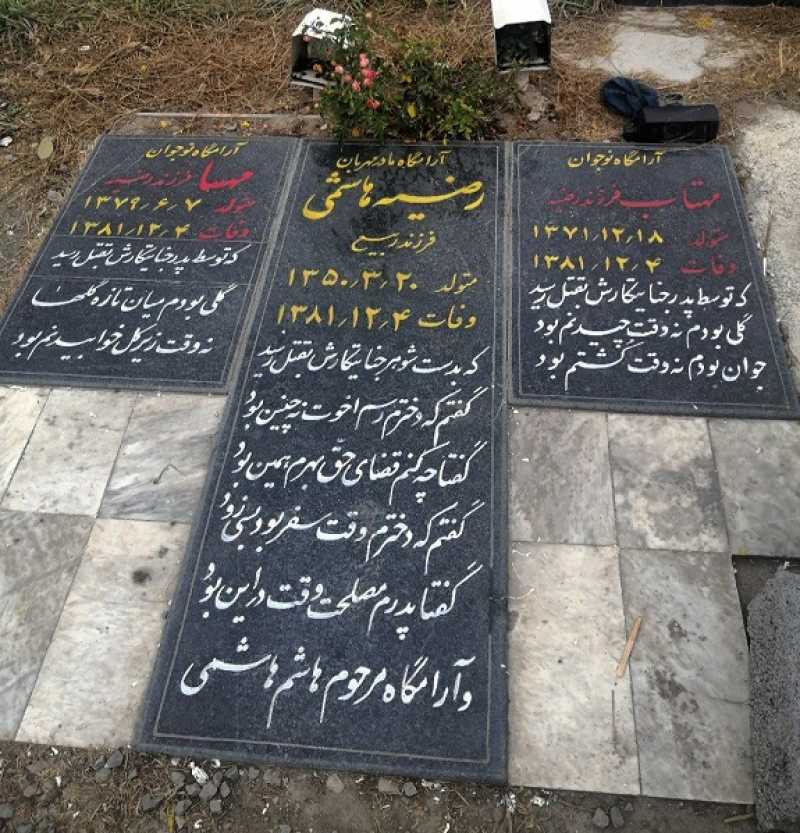 آرامگاه نوجوان
مهتاب فرزند رضیه
متولد ۱۳۷۱/۱۲/۱۸
وفات ۱۳۸۱/۱۲/۴
که توسط پدر جنایتکارش بقتل رسید
گلی بودم نه وقت چیدنم بود
جوان بودم نه وقت کشتنم بود
آرامگاه مادر مهربان
رضیه هاشمی
فرزند ربیع
متولد ۱۳۵۰/۳/۲۰
وفات ۱۳۸۱/۱۲/۴
که بدست شوهر جنایتکارش بقتل رسید
گفتم که دخترم رسم اخوت نه چنین بود
گفتا چه کنم قضای حق بهرم همین بود
گفتم که دخترم وقت سفر بود بسی زود
گفتا پدرم مصلحت وقت در این بود
و آرامگاه مرحوم هاشم هاشمی
آرامگاه نوجوان
مهسا فرزند رضیه
متولد ۱۳۷۹/۶/۷
وفات ۱۳۸۱/۱۲/۴
که توسط پدر جنایتکارش بقتل رسید
گلی بودم میان تازه گلها
نه وقت زیر گل خوابیدنم بود